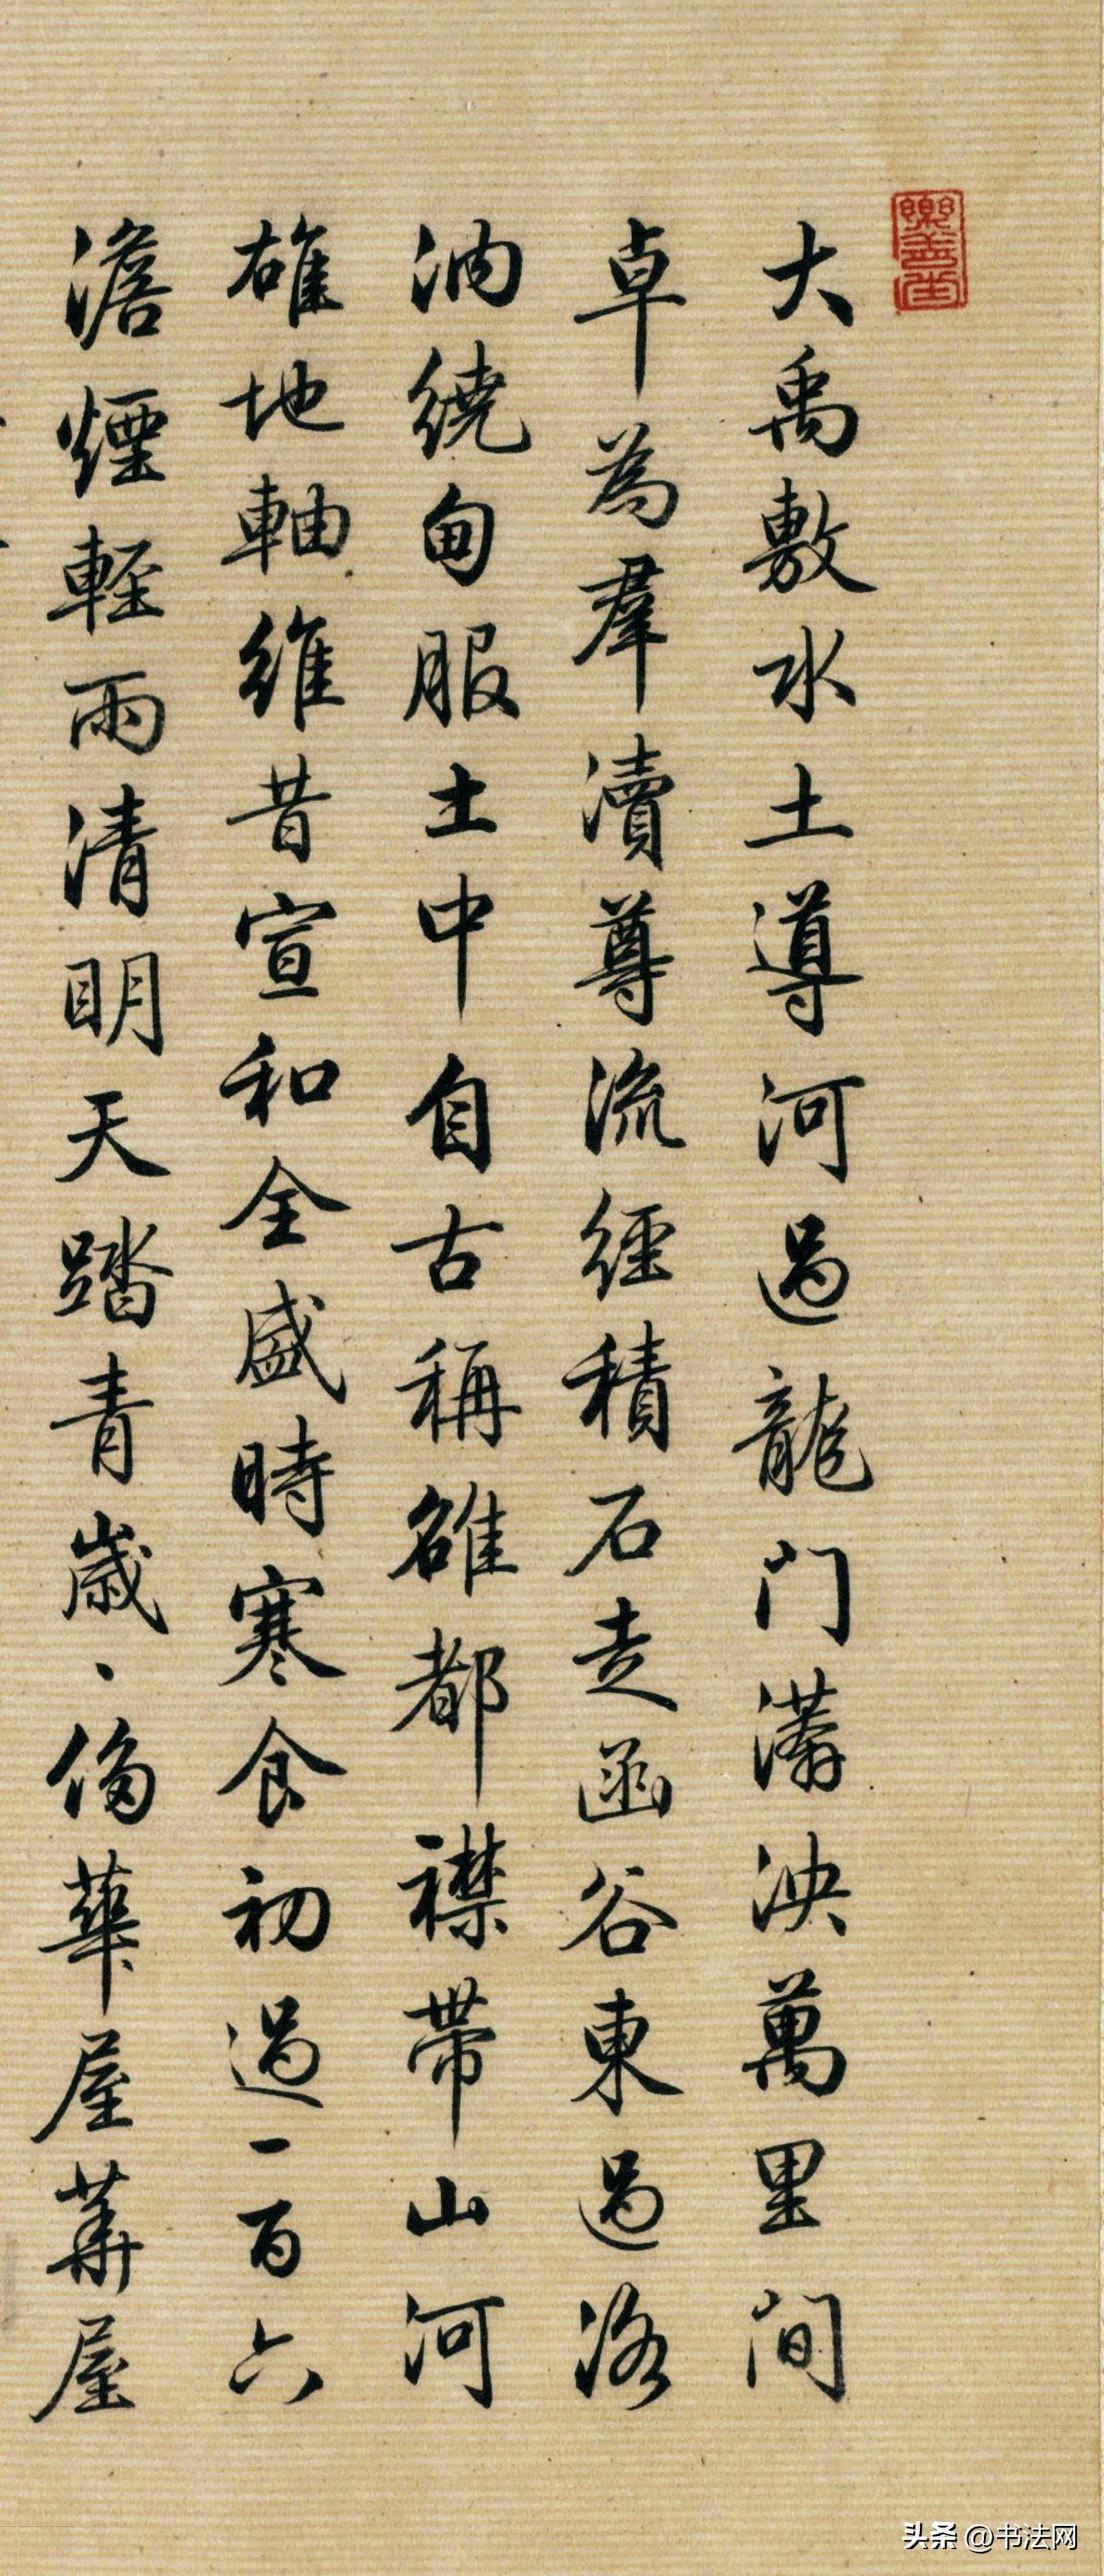 樂善堂
大禹敷水土導河過龍门瀁泱萬里间
卓為羣瀆尊流經積石走函谷東過洛
汭繞甸服土中自古稱雄都襟帶山河
雄地軸維昔宣和全盛時寒食初過一百六
澹煙輕雨清明天踏青歲、侈華屋華屋
头条 @书法网